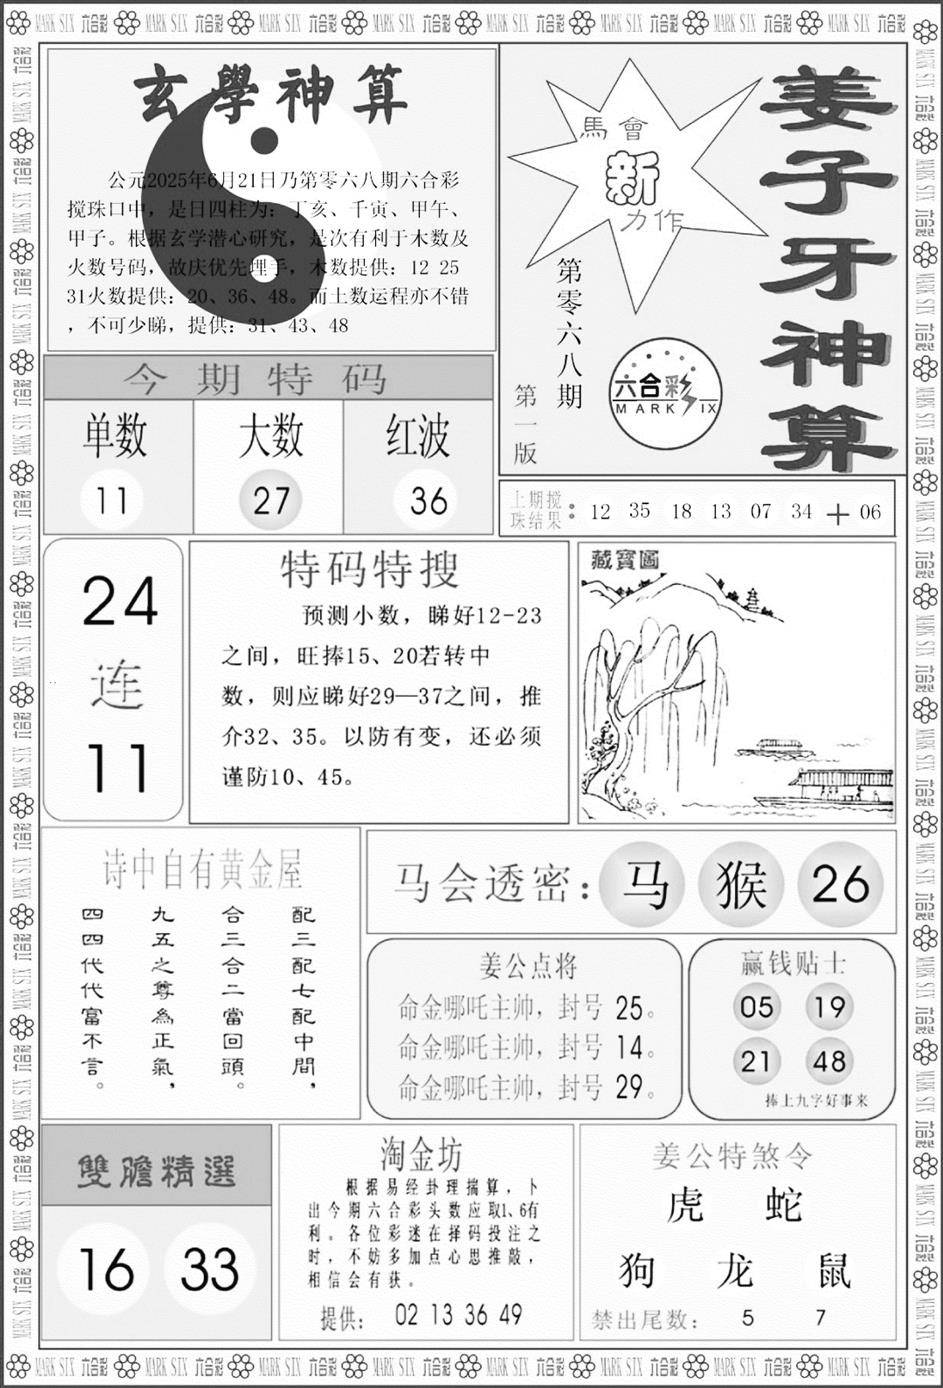 玄學神算
公元2025年6月21日乃第零六八期六合彩
搅珠口中，是日四柱为：丁亥、千寅、甲午、
甲子。根据玄学潜心研究，是次有利于木数及
火数号码，故庆优先埋手，木数提供：12 25
31火数提供：20、36、48。而土数运程亦不错
，不可少睇，提供：31、43、48
馬會
新
力作
第零六八期
第一版
六合彩
MARK SIX
姜子牙神算
今期特码
单数 大数 红波
11 27 36
上期搅
珠结果： 12 35 18 13 07 34 + 06
24
连
11
特码特搜
预测小数，睇好12-23
之间，旺捧15、20若转中
数，则应睇好29—37之间，推
介32、35。以防有变，还必须
谨防10、45。
藏寶圖
诗中自有黄金屋
配三配七配中間，
合三合二當回頭。
九五之尊為正氣，
四四代代富不言。
马会透密：马 猴 26
姜公点将
命金哪吒主帅，封号 25。
命金哪吒主帅，封号 14。
命金哪吒主帅，封号 29。
赢钱贴士
05 19
21 48
捧上九字好事来
雙膽精選
16 33
淘金坊
根据易经卦理揣算，卜
出今期六合彩头数应取1、6有
利。各位彩迷在择码投注之
时，不妨多加点心思推敲，
相信会有获。
提供： 02 13 36 49
姜公特煞令
虎 蛇
狗 龙 鼠
禁出尾数： 5 7